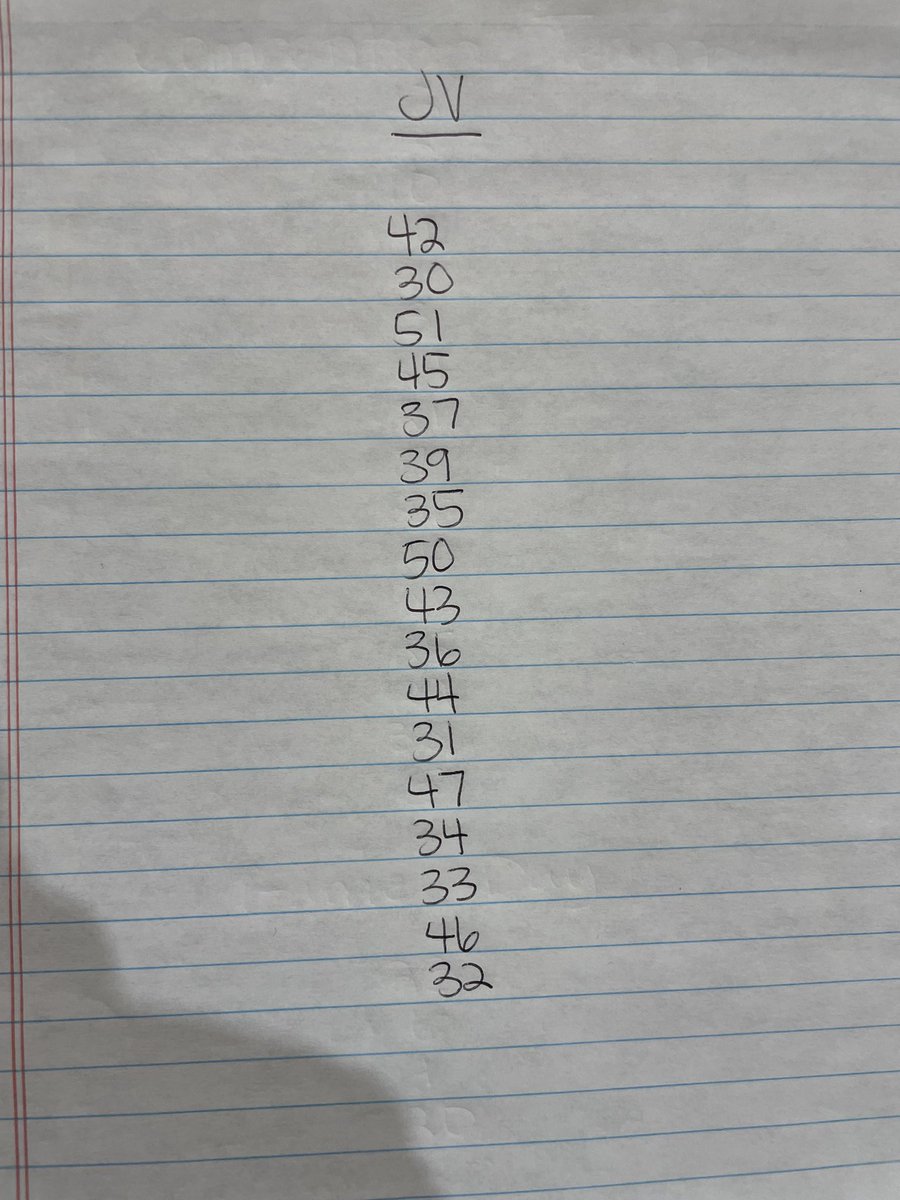 JV
42
30
51
45
37
39
35
50
43
36
44
31
47
34
33
46
32